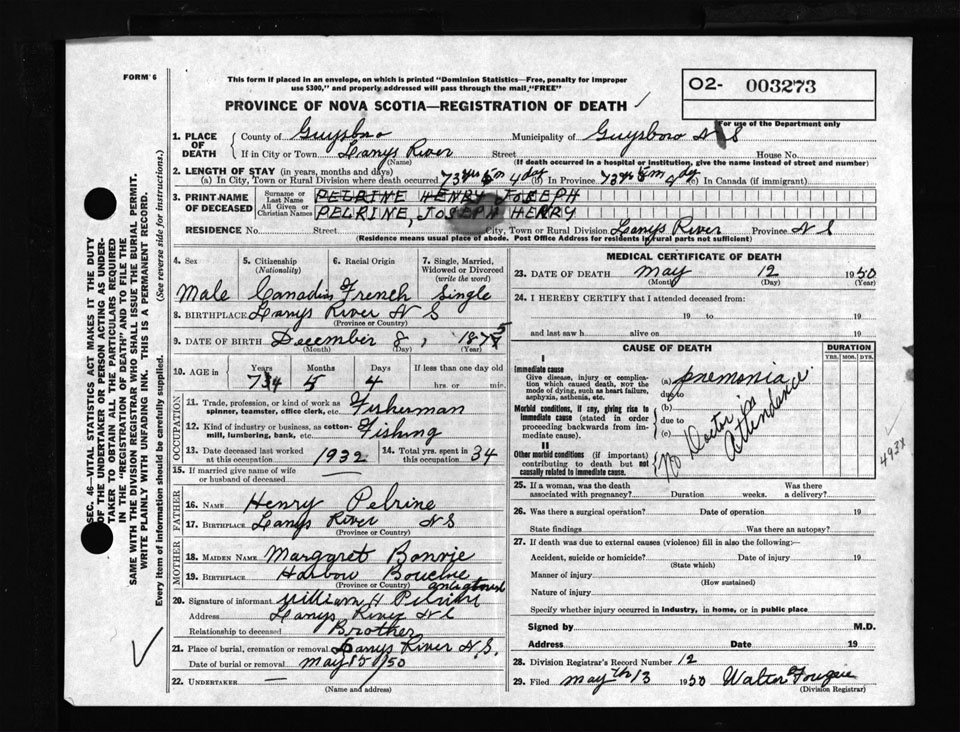 FORM 6
This form if placed in an envelope, on which is printed "Dominion Statistics—Free, penalty for improper
use $300," and properly addressed will pass through the mail "FREE"
O2- 003273
PROVINCE OF NOVA SCOTIA—REGISTRATION OF DEATH ✓
For use of the Department only
1. PLACE OF DEATH { County of Guysboro Municipality of Guysboro N S
If in City or Town Larrys River Street House No.
(Name) (If death occurred in a hospital or institution, give the name instead of street and number)
2. LENGTH OF STAY (in years, months and days)
(a) In City, Town or Rural Division where death occurred 73 yrs 5 m 4 dy (b) In Province 73 yrs 5 m 4 dy (c) In Canada (if immigrant)
3. PRINT NAME OF DECEASED { Surname or Last Name PELRINE HENRY JOSEPH
All Given or Christian Names PELRINE, JOSEPH HENRY
RESIDENCE No. Street City, Town or Rural Division Larrys River Province N S
(Residence means usual place of abode. Post Office Address for residents in rural parts not sufficient)
4. Sex 5. Citizenship (Nationality) 6. Racial Origin 7. Single, Married, Widowed or Divorced (write the word)
Male Canadian French Single
8. BIRTHPLACE Larrys River N S
(Province or Country)
9. DATE OF BIRTH December 8, 1875
(Month) (Day) (Year)
10. AGE in Years Months Days If less than one day old
74 5 4 hrs. or min.
OCCUPATION
11. Trade, profession, or kind of work as spinner, teamster, office clerk, etc. Fisherman
12. Kind of industry or business, as cotton-mill, lumbering, bank, etc. Fishing
13. Date deceased last worked at this occupation 1932 14. Total yrs. spent in this occupation 34
15. If married give name of wife or husband of deceased
FATHER
16. NAME Henry Pelrine
17. BIRTHPLACE Larrys River N S
MOTHER
18. MAIDEN NAME Marggret Bonvie
19. BIRTHPLACE Harbour Bouche
(Province or Country) Antigonish
20. Signature of informant William H Pelrine
Address Larrys River N S
Relationship to deceased Brother
21. Place of burial, cremation or removal Larrys River N.S.
Date of burial or removal May 15/50
22. UNDERTAKER —
(Name and address)
MEDICAL CERTIFICATE OF DEATH
23. DATE OF DEATH May 12 1950
(Month) (Day) (Year)
24. I HEREBY CERTIFY that I attended deceased from:
19 to 19
and last saw h alive on 19
CAUSE OF DEATH DURATION
YRS. MOS. DYS.
I
Immediate cause
Give disease, injury or complication which caused death, not the mode of dying, such as heart failure, asphyxia, asthenia, etc. (a) pnemonia
due to
Morbid conditions, if any, giving rise to immediate cause (stated in order proceeding backwards from immediate cause). (b)
due to
(c)
II
Other morbid conditions (if important) contributing to death but not causally related to immediate cause.
No Doctor in Attendance.
493X
25. If a woman, was the death associated with pregnancy? Duration weeks. Was there a delivery?
26. Was there a surgical operation? Date of operation 19
State findings Was there an autopsy?
27. If death was due to external causes (violence) fill in also the following:—
Accident, suicide or homicide? Date of injury 19
(State which)
Manner of injury
(How sustained)
Nature of injury
Specify whether injury occurred in industry, in home, or in public place
Signed by M.D.
Address Date 19
28. Division Registrar's Record Number 12
29. Filed May th 13 1950 Walter Fougere
(Division Registrar)
SEC. 46—VITAL STATISTICS ACT MAKES IT THE DUTY
OF THE UNDERTAKER OR PERSON ACTING AS UNDERTAKER TO OBTAIN ALL THE PARTICULARS REQUIRED
IN THE "REGISTRATION OF DEATH" AND TO FILE THE
SAME WITH THE DIVISION REGISTRAR WHO SHALL ISSUE THE BURIAL PERMIT.
WRITE PLAINLY WITH UNFADING INK. THIS IS A PERMANENT RECORD.
Every item of information should be carefully supplied. (See reverse side for instructions.)